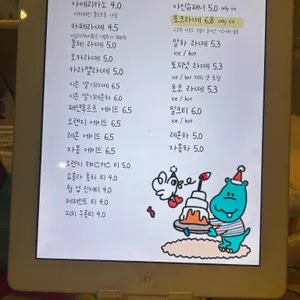 아메리카노 4.0
카페라떼 4.5
돌체 라떼 5.0
모카라떼 5.0
카라멜라떼 5.0
시즌 딸기라떼 6.5
시즌 딸기레몬차 6.0
패션후르츠 에이드 6.5
오렌지 에이드 6.5
레몬 에이드 6.5
자몽 에이드 6.5
오렌지 티 5.0
티 4.0
4.0
페퍼민트 티 4.0
티 4.0
아인슈페너 5.0 only ice
6.8 only ice
말차 라떼 5.3
ice / hot
토피넛 라떼 5.3
ice / hot
초코 라떼 5.3
ice / hot
밀크티 6.0
ice / hot
레몬차 5.0
자몽차 5.0